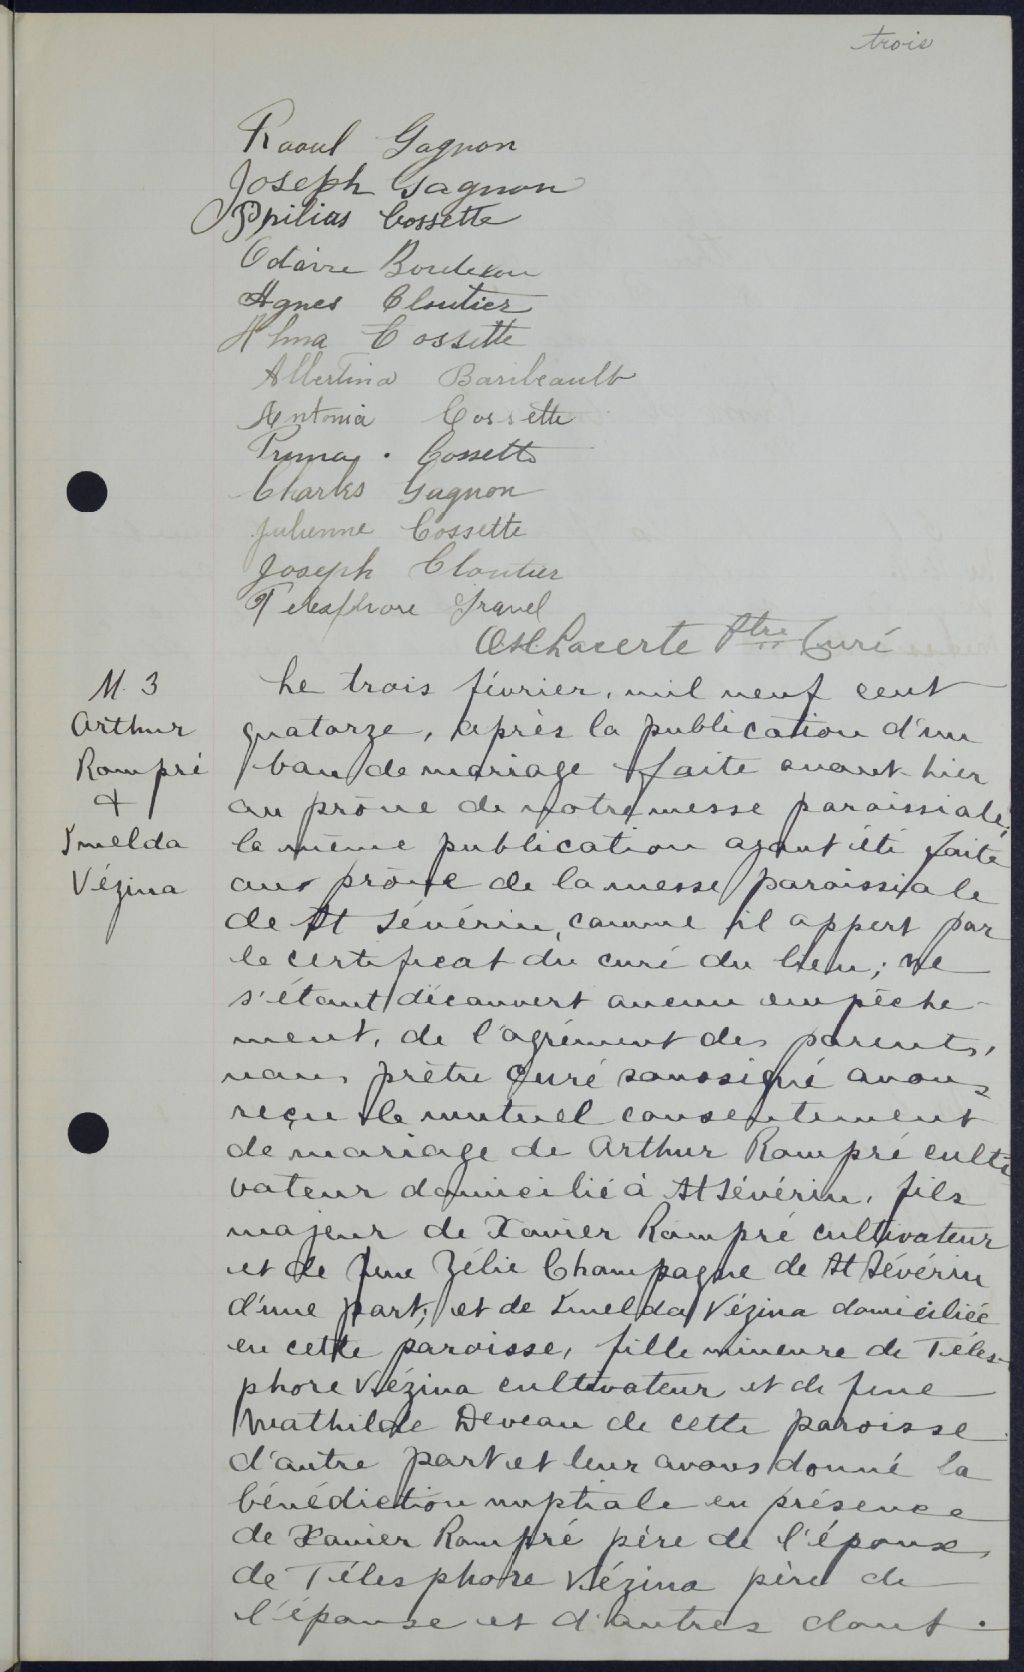 trois
Raoul Gagnon
Joseph Gagnon
Philias Cossette
Odaire Bordeleau
Agnes Cloutier
Alma Cossette
Albertina Baribeault
Antonia Cossette
Cossette
Charles Gagnon
Julienne Cossette
Joseph Cloutier
Telesphore Gravel
Lacerte Ptre Curé
M. 3
Arthur
Rompré
&
Imelda
Vézina
Le trois février, mil neuf cent
quatorze, après la publication d'un
ban de mariage faite avant-hier
au prône de notre messe paroissiale;
la même publication ayant été faite
au prône de la messe paroissiale
de St Sévérin, comme il appert par
le certificat du curé du lieu; ne
s'étant découvert aucun empêche-
ment, de l'agrément des parents,
nous prêtre curé soussigné avons
reçu le mutuel consentement
de mariage de Arthur Rompré culti
vateur domicilié à St Sévérin, fils
majeur de Xavier Rompré cultivateur
et de feue Zélie Champagne de St Sévérin
d'une part; et de Imelda Vézina domiciliée
en cette paroisse, fille mineure de Téles-
phore Vézina cultivateur et de feue
Mathilde Deveau de cette paroisse
d'autre part et leur avons donné la
bénédiction nuptiale en présence
de Xavier Rompré père de l'époux,
de Télesphore Vézina père de
l'épouse et d'autres dont